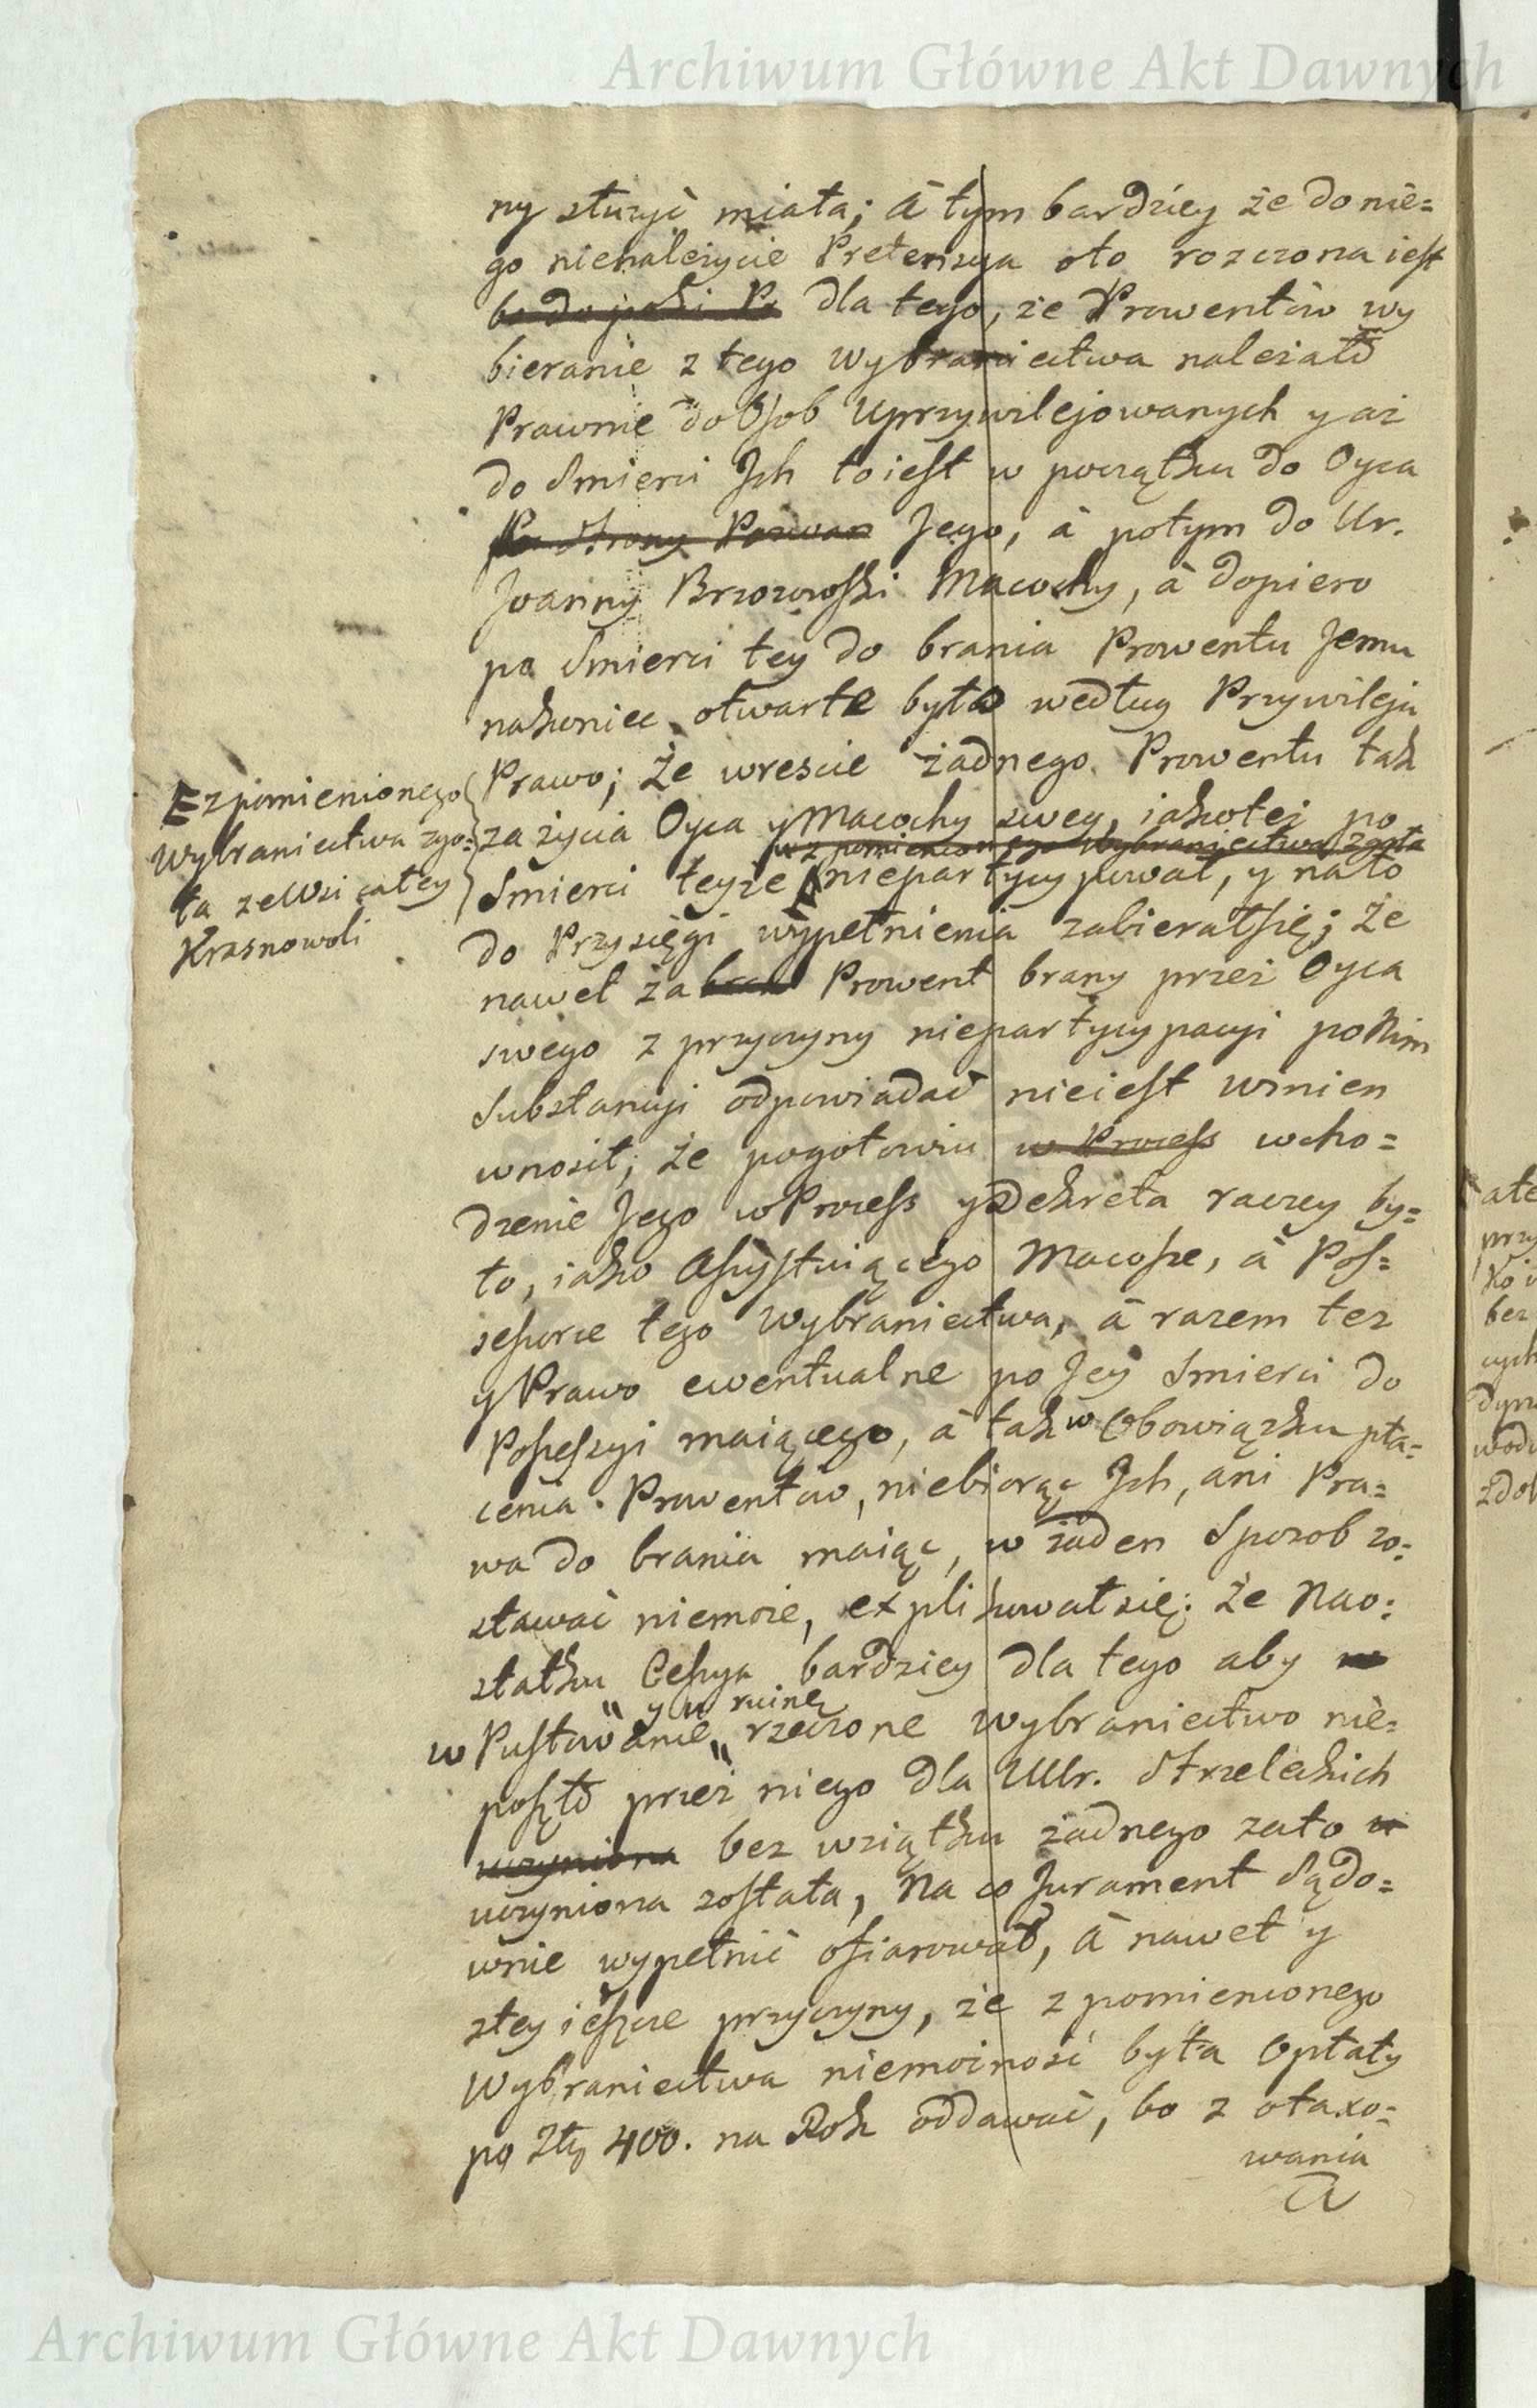 Archiwum Główne Akt Dawnych
ny służyć miała; à tym bardziey że do nie=
go nienależycie Pretensya oto rozczona iest
bo do poki Pr dla tego, że Prowentów wy
bieranie z tego Wybraniectwa należało
Prawnie do Osob Uprzywilejowanych y aż
do Smierci Jch to iest w początku do Oyca
Strony Pozwan Jego, à potym do Ur.
Joanny Brzozowski Macochy, à dopiero
po Smierci tey do brania Prowentu Jemu
nakoniec otwarte było według Przywileju
Prawo; że wreście żadnego Prowentu tak
za życia Oyca y Macochy swey, iakoteż po
w z pomienionego Wybraniectwa zgoła
Smierci teyże niepartycypował, y nato
E z pomienionego
Wybraniectwa zgo=
ła ze Wsi całey
Krasnowoli
do Przysięgi wypełnienia zabierał się; że
nawet za bran Prowent brany przez Oyca
swego z przyczyny niepartycypacyi po Nim
Substancyi odpowiadać nieiest winien
wnosił; że pogotowiu w Process wcho=
dzenie Jego w Process y Dekreta raczey by=
ło, iako Assystuiącego Macosze, à Pos=
sessorce tego Wybraniectwa, à razem też
y Prawo ewentualne po Jey Smierci do
Possessyi maiącego, à tak w Obowiązku pła=
cenia Prowentów, niebiorąc Jch, ani Pra=
wa do brania maiąc, w żaden Sposob zo=
stawać niemoże, explikował się: że Nao=
statku Cessya bardziey dla tego aby w
y w ruinę
w Pustowanie rzeczone Wybraniectwo nie=
poszło przez niego dla UUr. Strzeleckich
uczyniona bez wziątku żadnego zato u
uczyniona została, Na co Jurament Sądo=
wnie wypełnić ofiarował, à nawet y
ztey ieszcze przyczyny, że z pomienionego
Wybraniectwa niemożność była Opłaty
po Złp 400. na Rok oddawać, bo z otaxo=
wania
Archiwum Główne Akt Dawnych